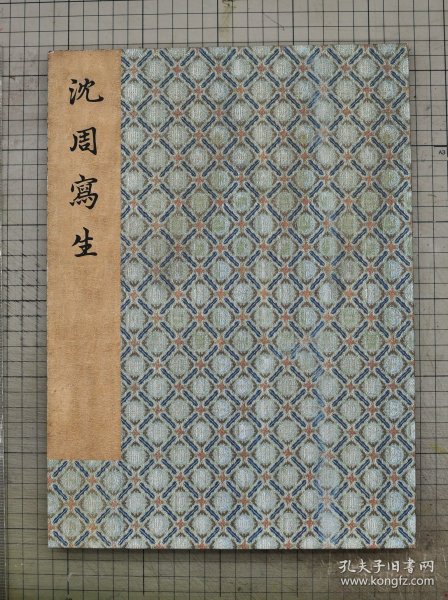 沈周寫生
A3
孔夫子旧书网
www.kongfz.com